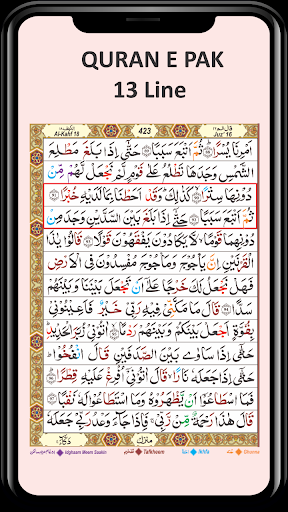 QURAN E PAK
13 Line
Al-Kahf 18
423
Juz' 16
اَمْرِنَا يُسْرًا ثُمَّ اَتْبَعَ سَبَبًا حَتّٰۤى اِذَا بَلَغَ مَطْلِعَ
الشَّمْسِ وَجَدَهَا تَطْلُعُ عَلٰى قَوْمٍ لَّمْ نَجْعَلْ لَّهُمْ مِّنْ
دُوْنِهَا سِتْرًا كَذٰلِكَ وَقَدْ اَحَطْنَا بِمَا لَدَيْهِ خُبْرًا
ثُمَّ اَتْبَعَ سَبَبًا حَتّٰۤى اِذَا بَلَغَ بَيْنَ السَّدَّيْنِ وَجَدَ مِنْ
دُوْنِهِمَا قَوْمًا لَّا يَكَادُوْنَ يَفْقَهُوْنَ قَوْلًا قَالُوْا يٰذَا
الْقَرْنَيْنِ اِنَّ يَاْجُوْجَ وَمَاْجُوْجَ مُفْسِدُوْنَ فِى الْاَرْضِ
فَهَلْ نَجْعَلُ لَكَ خَرْجًا عَلٰۤى اَنْ تَجْعَلَ بَيْنَنَا وَبَيْنَهُمْ
سَدًّا قَالَ مَا مَكَّنِّىْ فِيْهِ رَبِّىْ خَيْرٌ فَاَعِيْنُوْنِىْ
بِقُوَّةٍ اَجْعَلْ بَيْنَكُمْ وَبَيْنَهُمْ رَدْمًا اٰتُوْنِىْ زُبَرَ الْحَدِيْدِ
حَتّٰۤى اِذَا سَاوٰى بَيْنَ الصَّدَفَيْنِ قَالَ انْفُخُوْا
حَتّٰۤى اِذَا جَعَلَهٗ نَارًا قَالَ اٰتُوْنِىْۤ اُفْرِغْ عَلَيْهِ قِطْرًا
فَمَا اسْطَاعُوْۤا اَنْ يَّظْهَرُوْهُ وَمَا اسْتَطَاعُوْا لَهٗ نَقْبًا
قَالَ هٰذَا رَحْمَةٌ مِّنْ رَّبِّىْ فَاِذَا جَآءَ وَعْدُ رَبِّىْ جَعَلَهٗ
Idghaam Meem Saakin
Tafkheem
Ikhfa
Ghunna